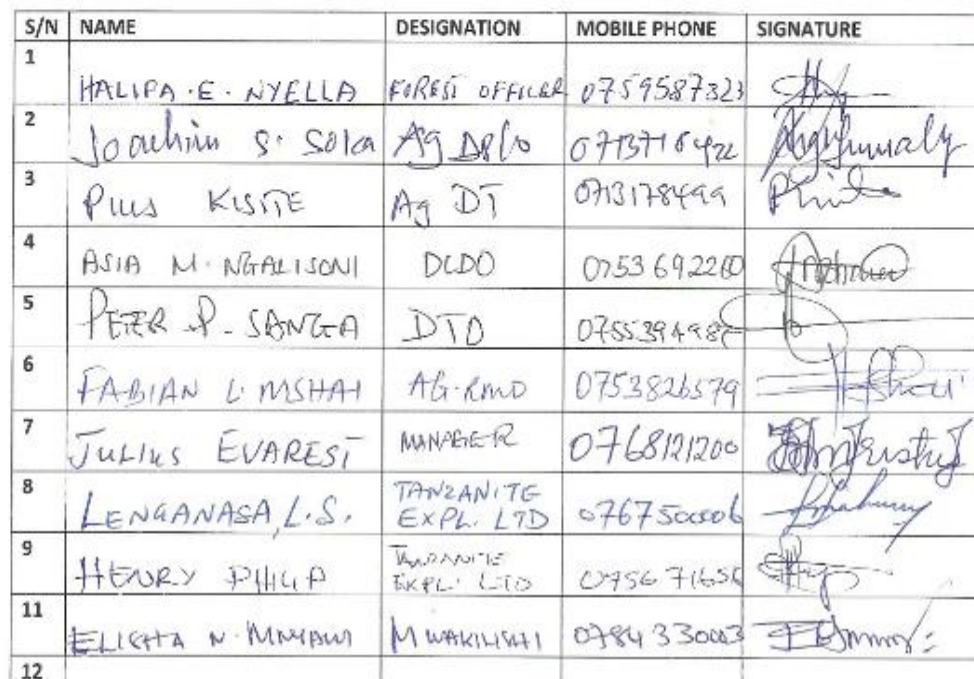 S/N NAME DESIGNATION MOBILE PHONE SIGNATURE
1 HALIFA .E. NYELLA FOREST OFFICER 0759587323
2 Joachim S. 
3 PIUS KISITE Ag DT 0713178499
4 ASIA M. NGALISONI DCDO 0753 692260
5 PETER .P. SANGA DTO
6 FABIAN L. MSHAI AG. RMO 0753826579
7 JULIUS EVAREST MANAGER 0768121200
8 LENGANASA, L.S. TANZANITE
EXPL. LTD 0767500006
9 HENRY PHILIP TANZANITE
EXPL. LTD
11 ELISHA N. MWAKILISHI 0784 330003
12